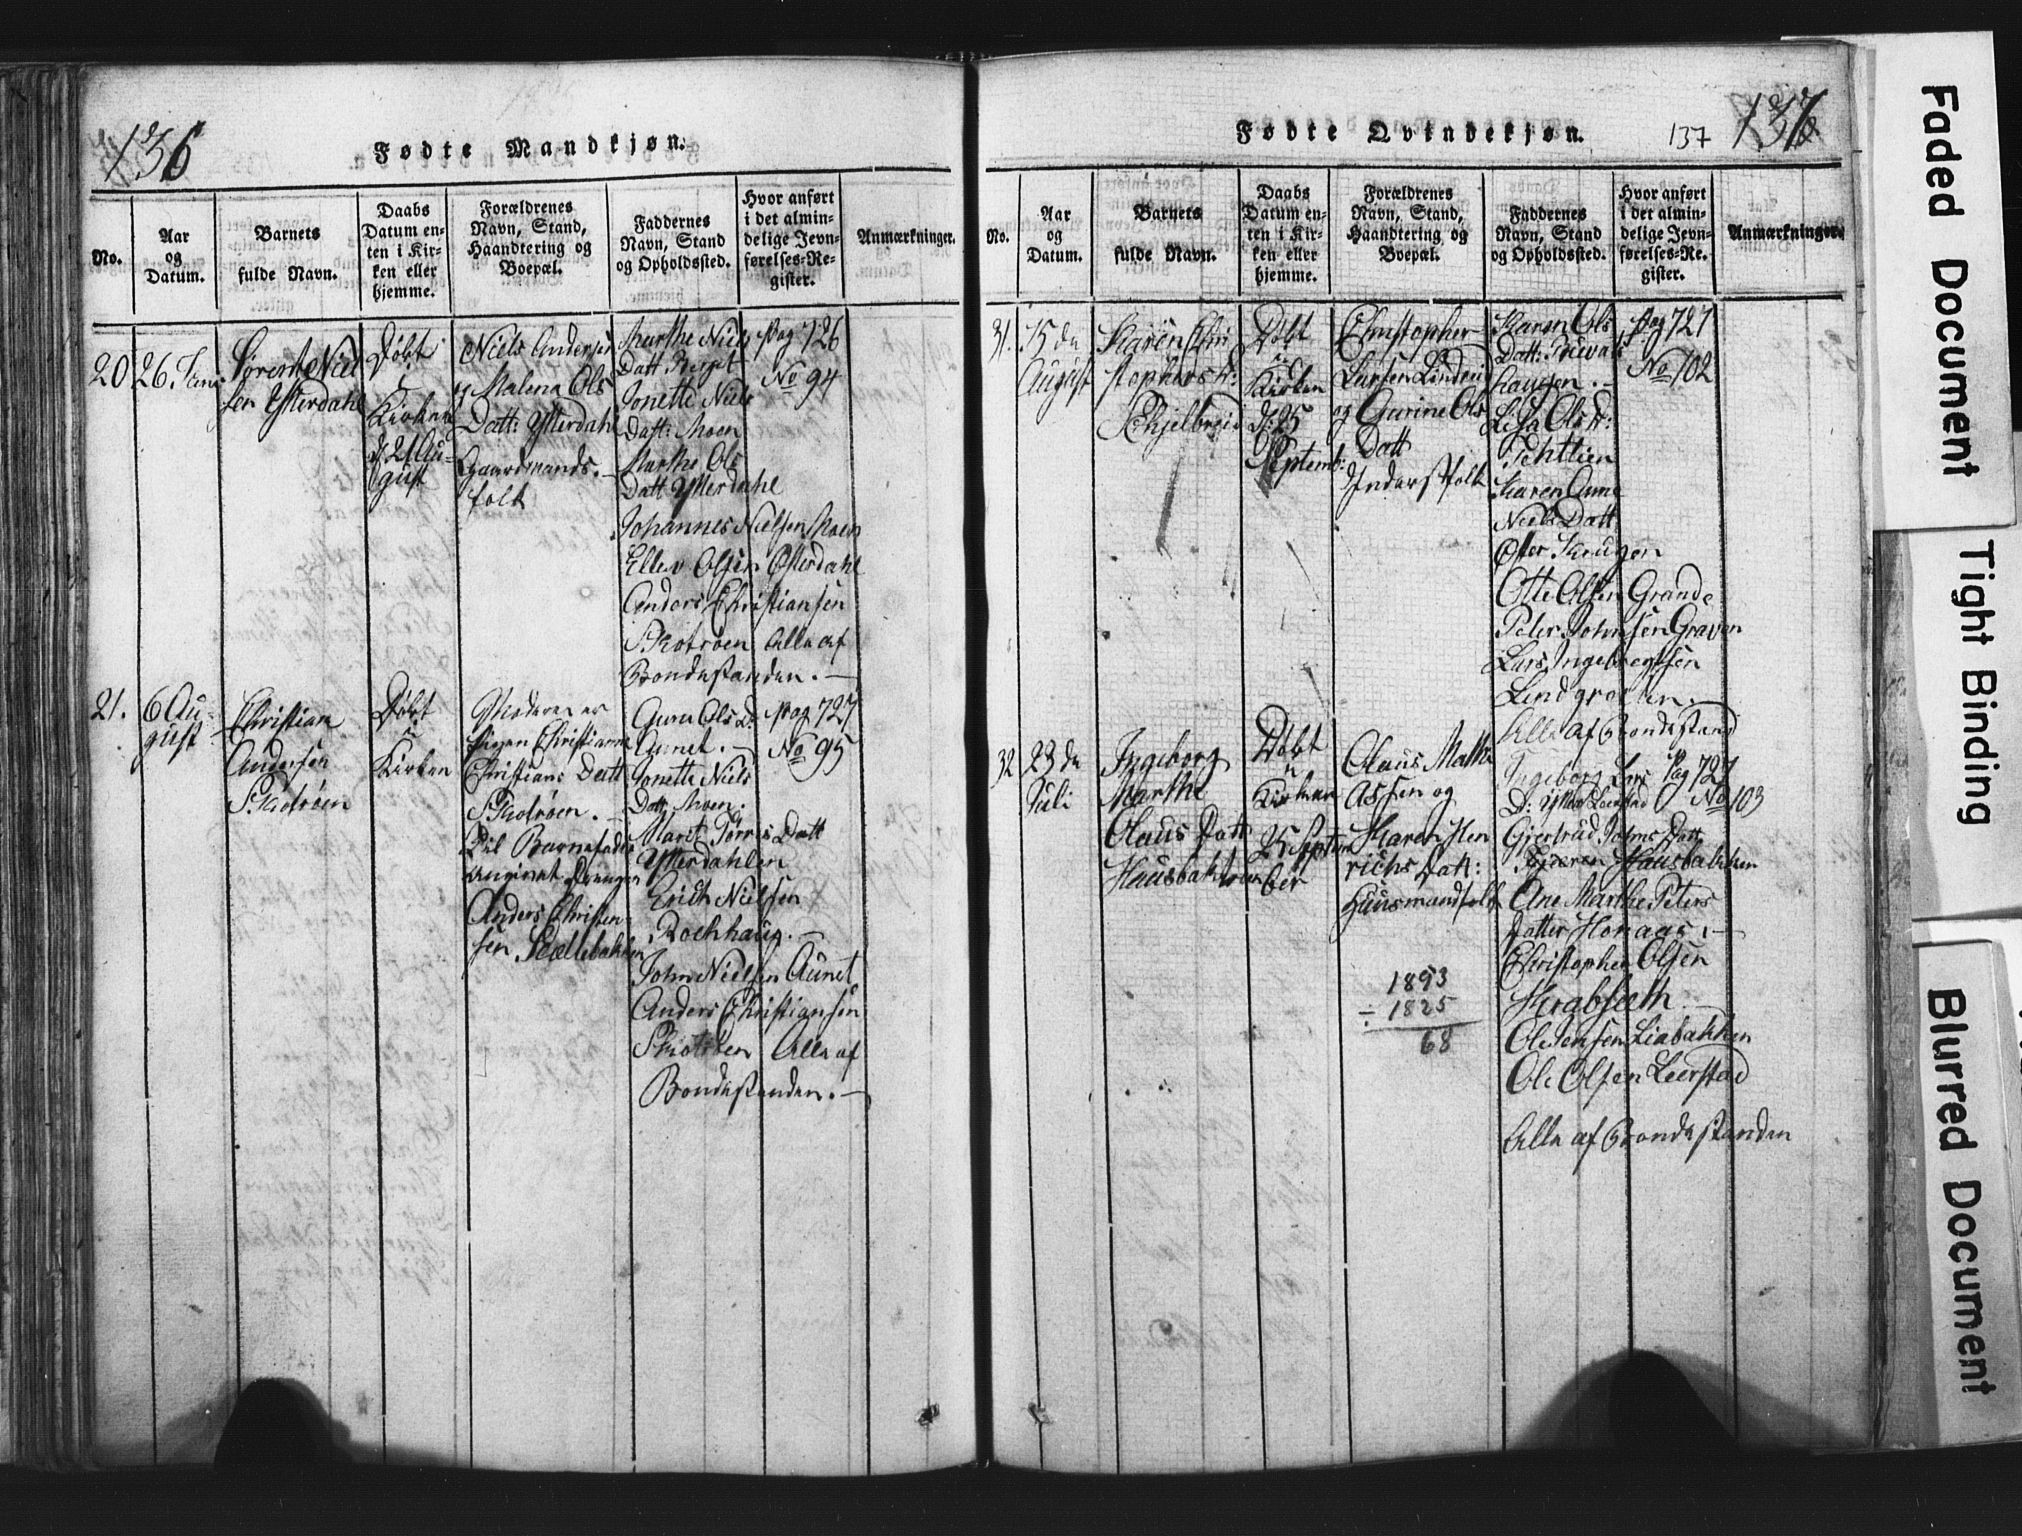 136
Fødte Mandkjøn.
No.
Aar
og
Datum.
Barnets
fulde Navn.
Daabs
Datum en-
ten i Kir-
ken eller
hjemme.
Forældrenes
Navn, Stand,
Haandtering og
Boepæl.
Faddernes
Navn, Stand
og Opholdssted.
Hvor anført
i det almin-
delige Jevn-
førelses-Re-
gister.
Anmærkninger.
20
26. Juni
Sørent Niel
sen Ytterdahl
Døbt
i
Kirken
d: 21 Au-
gust
Niels Andersen
og Malena Ols
Datt: Ytterdahl
Gaardmands.-
folk
Marthe Niels
Datt Berget
Jonette Niels
Datt: Moen
Marthe Ols
Datt Ytterdahl
Johannes Nielsen Moen
Ellev Olsen Ytterdahl
Anders Christiansen
Skotrøen Alle af
Bondestanden. —
Pag 726
No 94
21.
6 Au-
gust
Christian
Andersen
Skotrøen
Døbt
i
Kirken
Moderen er
Christianna
Christians Datt
Skotrøen. —
Til Barnefader
angivet Drengen
Anders Christen-
sen Scellebakken
Guru Ols D:
Aunet. —
Jonette Niels
Datt. Moen.
Marit Tørris Datt
Ytterdahlen
Erich Nielsen
Rochhaug. —
John Nielsen Aunet
Anders Christiansen
Skotrøen Alle af
Bondestanden. —
Pag 727
No 95
Fødte Qvindekjøn.
137
137
No.
Aar
og
Datum.
Barnets
fulde Navn.
Daabs
Datum en-
ten i Kir-
ken eller
hjemme.
Forældrenes
Navn, Stand,
Haandtering og
Boepæl.
Faddernes
Navn, Stand
og Opholdssted.
Hvor anført
i det almin-
delige Jevn-
førelses-Re-
gister.
Anmærkninger.
31.
15 de
August
Karen Chri
stophers D:
Skjelbreid
Døbt
i
Kirken
d: 25
Septemb:
Christopher
Larsen
og Gurine Ols
Datt
Inderstfolk
Karen Ols
Datt:
haugen. —
Lisa Ols D:
Karen Anne
Niels Datt
Øster
Otte Olsen Grande
Peter Johnsen Graven
Lars Ingebregtsen
Alle af Bondestand
Pag 727
No 102
32
23 de
Juli
Ingeborg
Marthe
Olaus Datt
Hausbakken
Døbt
i
Kirken
25 Septem
ber
Olaus Mathi
assen og
Karen Hen
richs Datt:
Huusmandfolk
1893
÷ 1825
68
Ingeborg Lars
D: Ytter Leerstad
Gjertrud Johns Datt
Hausbakken
Ane Marthe Peters
Datter Honaas. —
Christopher Olsen
Ole Jensen Liabakken
Ole Olsen Leerstad
Alle af Bondestanden
Pag 727
No 103
Faded Document
Tight Binding
Blurred Document